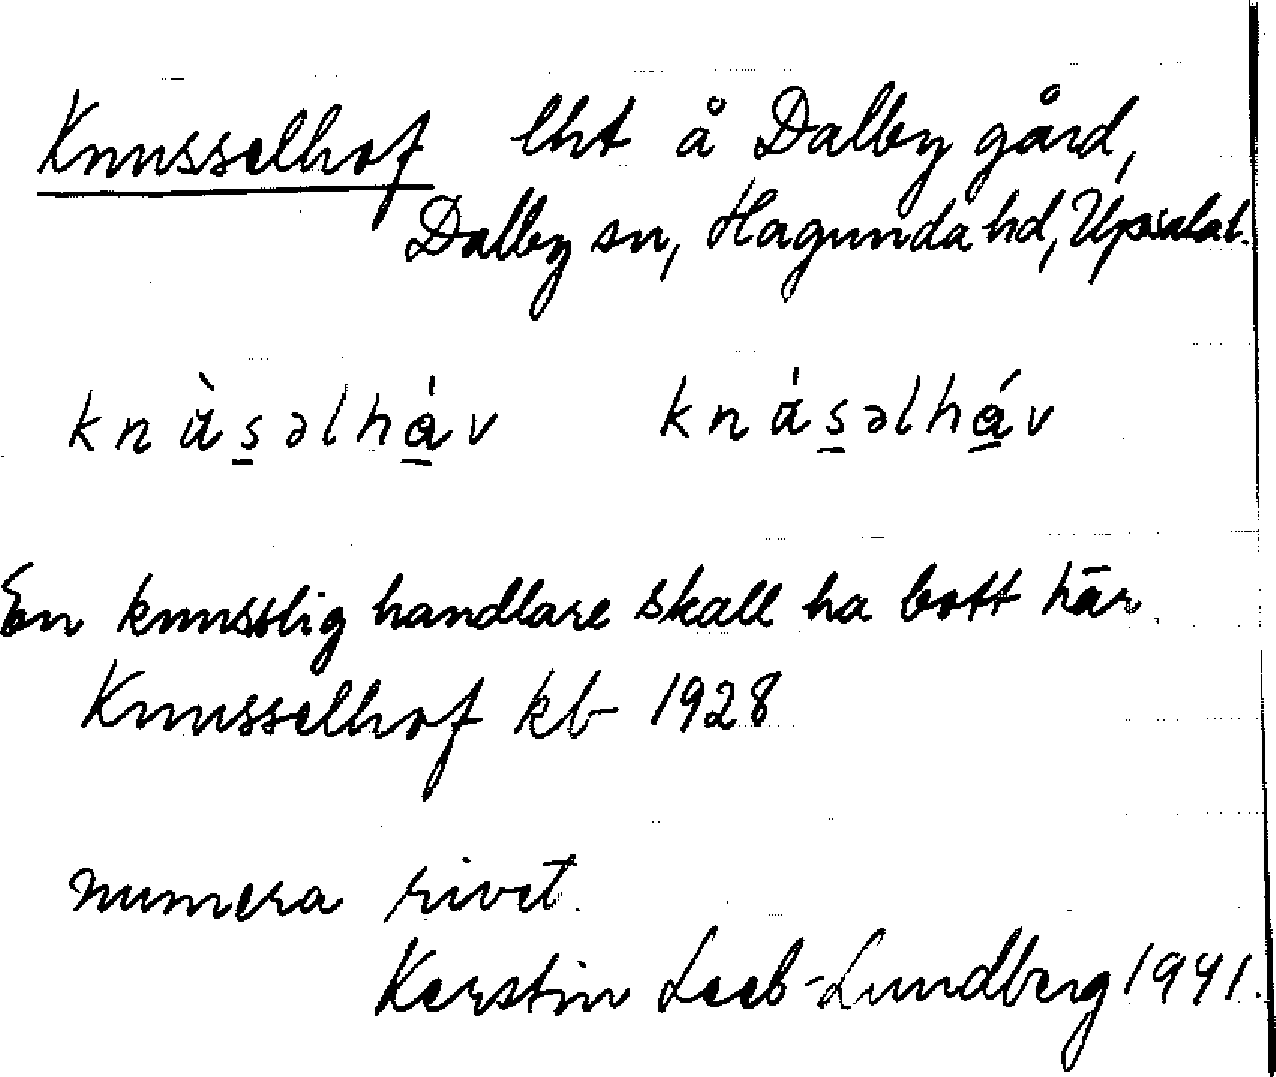 Knusselhof lht å Dalby gård,
Dalby sn, Hagunda hd, Upsalal.
knùsəlháv knúsəlháv
En knusslig handlare skall ha bott här.
Knusselhof kb 1928
numera rivet.
Kerstin Leeb-Lundberg 1941.